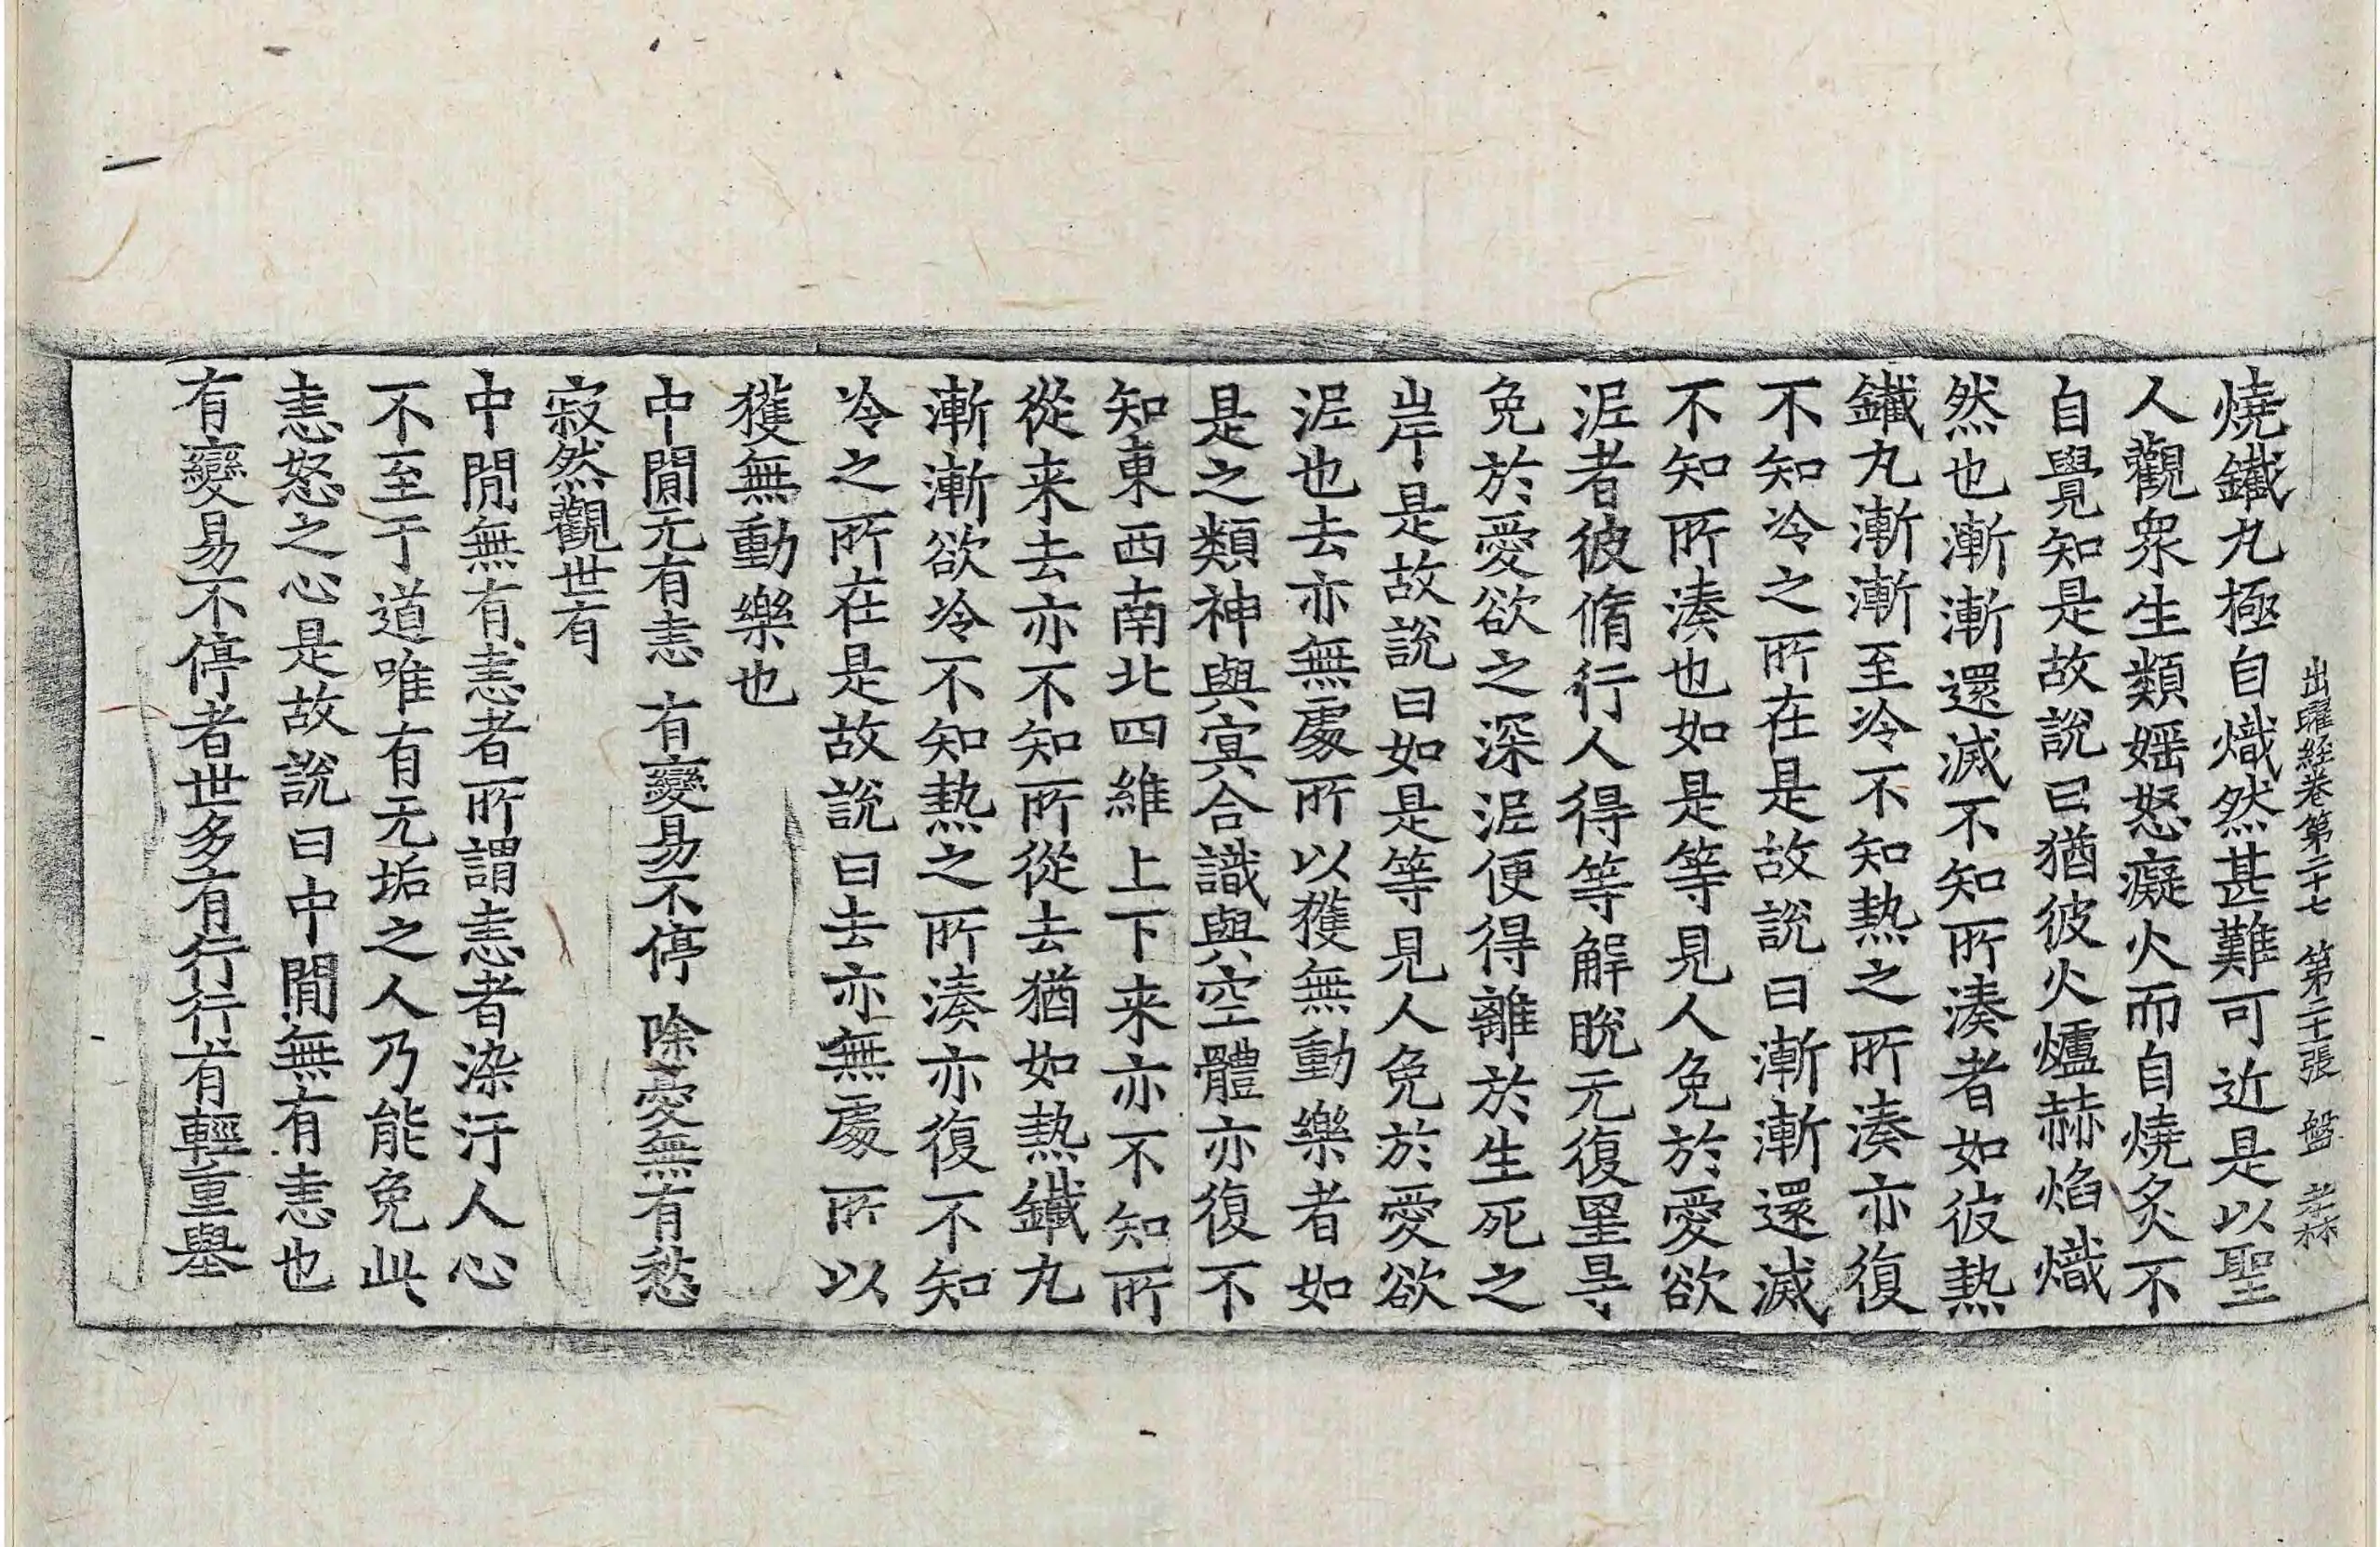 出曜経巻第二十七 第二十張 盤
燒鐵丸極自熾然甚難可近是以聖
人觀衆生類婬怒癡火而自燒炙不
自覺知是故說曰猶彼火爐赫焰熾
然也漸漸還滅不知所湊者如彼熱
鐵丸漸漸至冷不知熱之所湊亦復
不知冷之所在是故說曰漸漸還滅
不知所湊也如是等見人免於愛欲
泥者彼脩行人得等解脫无復罣㝵
免於愛欲之深泥便得離於生死之
岸是故說曰如是等見人免於愛欲
泥也去亦無處所以獲無動樂者如
是之類神與㝠合識與空體亦復不
知東西南北四維上下来亦不知所
從来去亦不知所從去猶如熱鐵丸
漸漸欲冷不知熱之所湊亦復不知
冷之所在是故說曰去亦無處所以
獲無動樂也
中閒无有恚 有變易不停 除憂無有愁
寂然觀世有
中閒無有恚者所謂恚者染汙人心
不至于道唯有无垢之人乃能免此
恚怒之心是故說曰中閒無有恚也
有變易不停者世多有行行有輕重舉